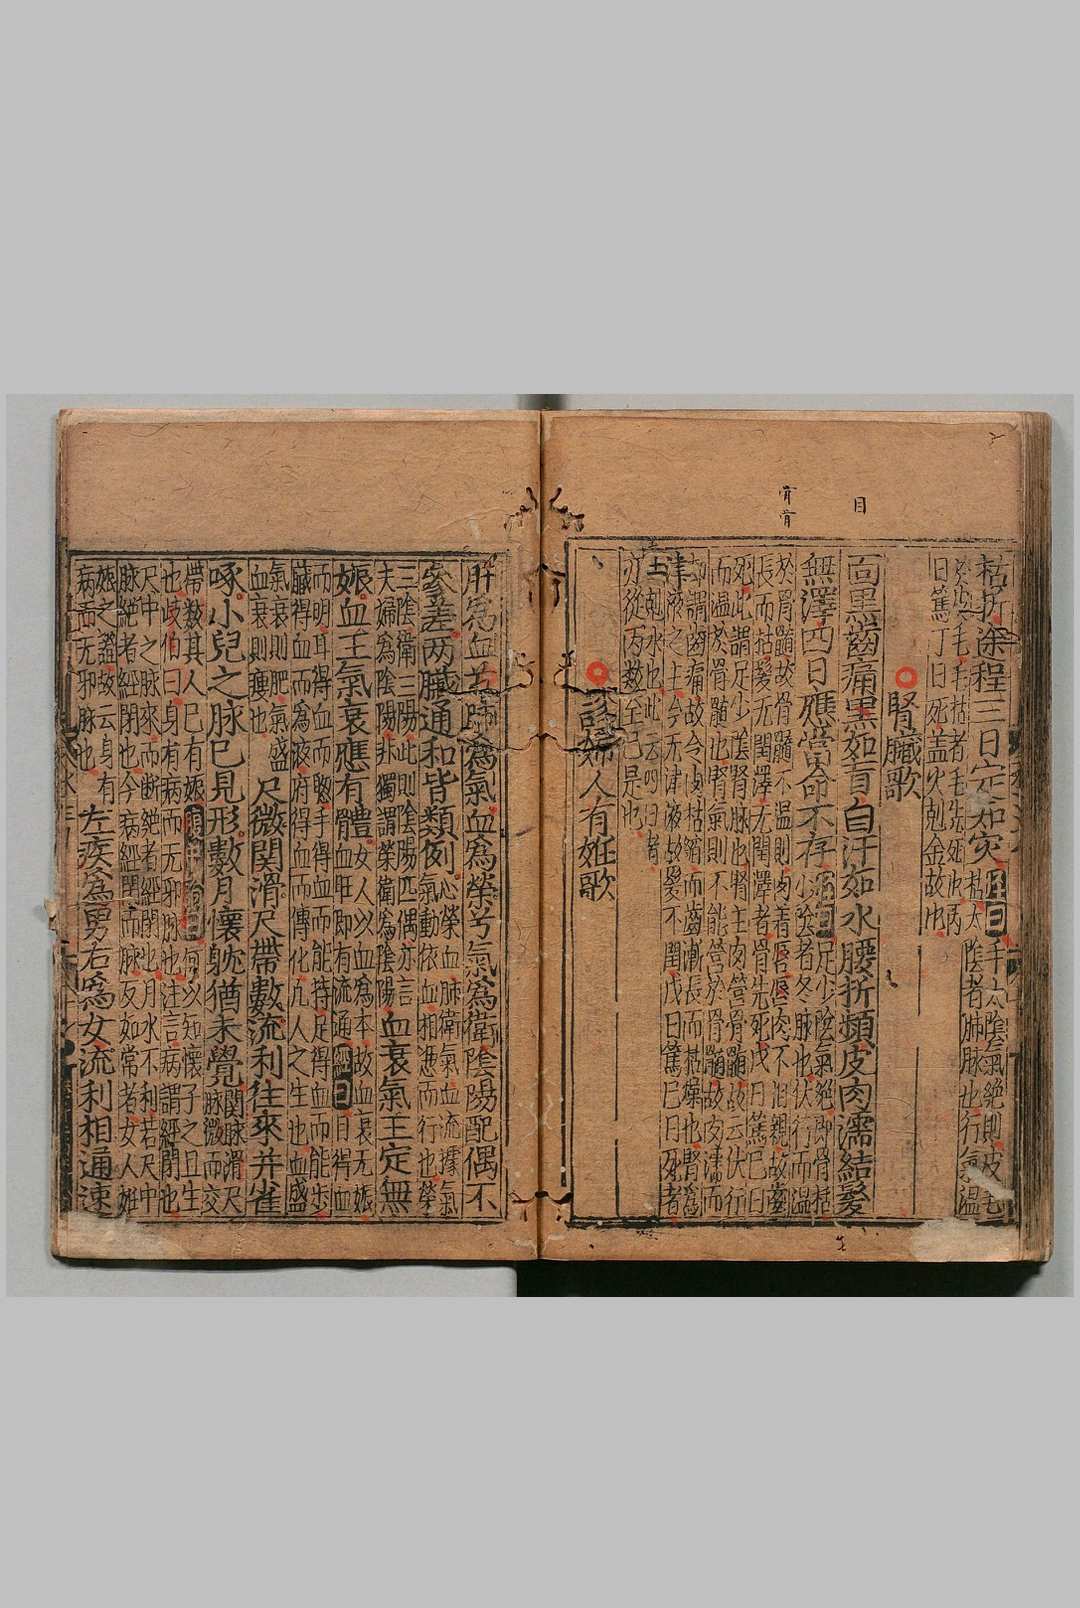 粘折涂程三日定知災經曰手太陰氣絕則皮毛
枯太陰者肺脉也行氣溫
於皮毛毛枯者毛先死也丙
日篤丁日死盖火剋金故也
腎臟歌
面黑齒痛黑如盲自汗如水腰折頻皮肉濡結髮
無澤四日應當命不存經曰足少陰氣絕即骨枯
少陰者冬脉也伏行而溫
於骨髓故骨髓不溫則肉不着骨骨肉不相親故齒
長而枯髮无閏澤无閏澤者骨先死戊日篤己日
死此謂足少陰腎脉也腎主肉營骨髓故云伏行
而溫於骨髓也腎氣則不能營於骨髓故肉濡而
却謂齒痛故令肉枯縮而齒漸長而枯燥也腎爲
津液之主今无津液故髮不閏戊日篤己日死者
土剋水也此云四日者
亦從丙數至己是也
診婦人有妊歌
肝爲血兮肺爲氣血爲榮兮氣爲衛陰陽配偶不
參差两臟通和皆類例心榮血肺衛氣血流據氣
氣動依血相憑而行也榮
三陰衛三陽此則陰陽匹偶亦言
夫婦爲陰陽非獨謂榮衛爲陰陽血衰氣王定無
娠血王氣衰應有體女人以血爲本故血衰无娠
血旺即有流通經曰目得血
而明耳得血而聦手得血而能持足得血而能步
臟得血而爲液府得血而傳化凡人之生也血盛
氣衰則肥氣盛
血衰則瘦也尺微関滑尺帶數流利往來并雀
啄小兒之脉已見形數月懷躭猶未覺関脉滑尺
脉微而交
帶數其人已有娠何以知懷子之且生
也歧伯曰身有病而无邪脉也注言病謂經閉也
尺中之脉來而断絶者經閉也月水不利若尺中
脉絶者經閉也今病經閉而脉反如常者女人妊
娠之證故云身有
病而无邪脉也左疾爲男右爲女流利相通速